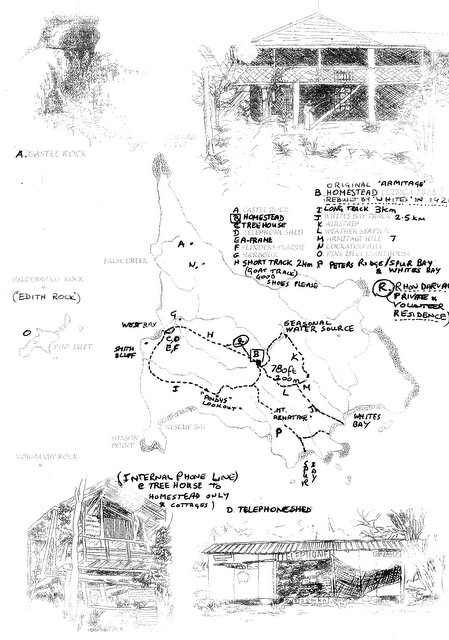 A. CASTLE ROCK
ORIGINAL 'ARMITAGE'
B. HOMESTEAD
REBUILT BY 'WHITES' IN 192
A CASTLE ROCK
B HOMESTEAD
C TREEHOUSE
D TELEPHONE SHED
E A-FRAME
F FLINDERS PLAQUE
G HARBOUR
H SHORT TRACK 2KM
(GOAT TRACK)
GOOD
SHOES PLEASE
I LONG TRACK 3KM
J WHITES BAY TRACK 2.5 KM
K AIRSTRIP
L WEATHER STATION
M ARMITAGE HILL 7
N COCKATOO HILL
O. PINE ISLET LIGHTHOUSE
P PETERS RIDGE/SPUR BAY
& WHITES BAY
R. RHONDARVAL
PRIVATE &
VOLUNTEER
RESIDENCE)
A
N.
FALSE CREEK
HILDEBRAND ROCK
('EDITH ROCK)
O
PINE ISLET
WEST BAY
G.
C, D
E, F
SMITH
BLUFF
H
R
B
SEASONAL
WATER SOURCE
K
780ft
200m
M
L
I
ANDYS'
LOOKOUT
MT.
ARMITAGE
J
P
WHITES
BAY
RESCUE BAY
HIXSON
POINT
SPUR
BAY
NORMANBY ROCK
(INTERNAL PHONE LINE)
C TREE HOUSE TO
HOMESTEAD ONLY
& COTTAGES)
D. TELEPHONE SHED
TELEPHONE